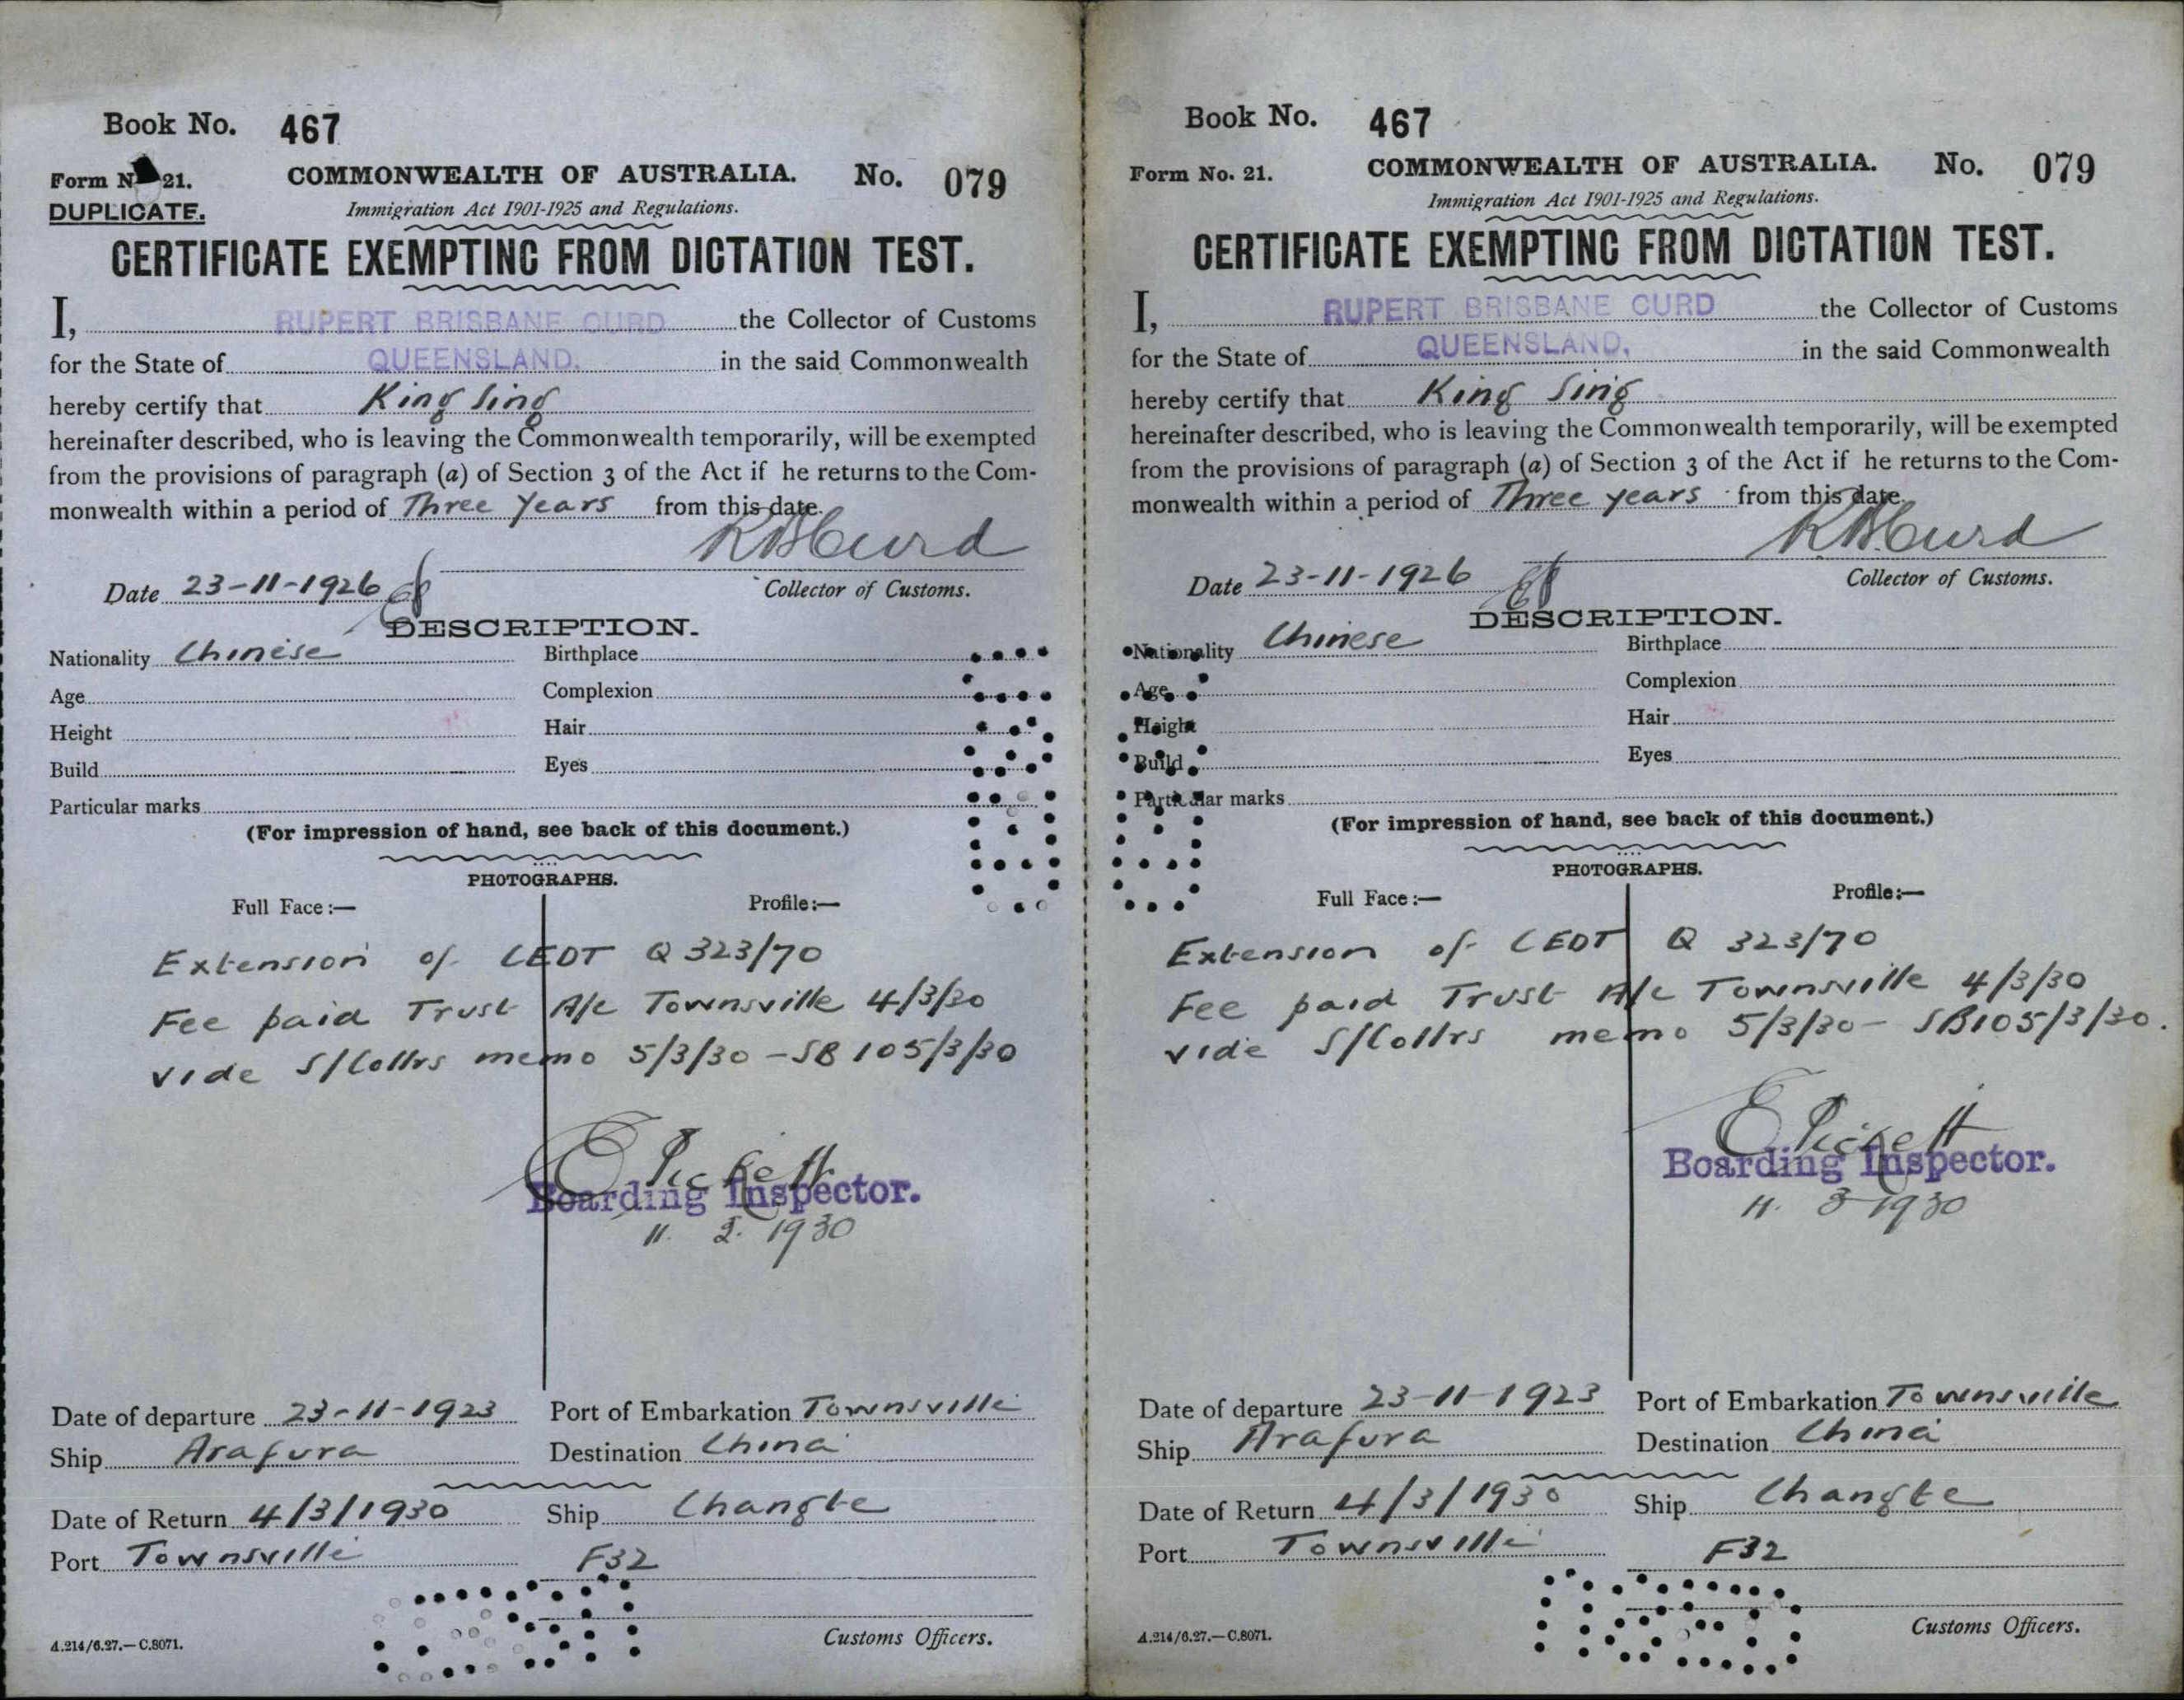 Book No. 467
Form No 21. COMMONWEALTH OF AUSTRALIA. No. 079
DUPLICATE. Immigration Act 1901-1925 and Regulations.
CERTIFICATE EXEMPTING FROM DICTATION TEST.
I, RUPERT BRISBANE CURD the Collector of Customs
for the State of QUEENSLAND. in the said Commonwealth
hereby certify that King Sing
hereinafter described, who is leaving the Commonwealth temporarily, will be exempted
from the provisions of paragraph (a) of Section 3 of the Act if he returns to the Com-
monwealth within a period of Three Years from this date.
RBCurd
Date 23-11-1926 Collector of Customs.
DESCRIPTION.
Nationality Chinese Birthplace
Age Complexion
Height Hair
Build Eyes
Particular marks
(For impression of hand, see back of this document.)
PHOTOGRAPHS.
Full Face:— Profile:—
Extension of CEDT Q 323/70
Fee paid Trust A/c Townsville 4/3/30
vide S/Collrs memo 5/3/30 - SB 105/3/30
E Pickett
Boarding Inspector.
11. 3. 1930
Date of departure 23-11-1923 Port of Embarkation Townsville
Ship Arafura Destination China
Date of Return 4/3/1930 Ship Changte
Port Townsville F32
Customs Officers.
A.214/6.27.—C.8071.
Book No. 467
Form No. 21. COMMONWEALTH OF AUSTRALIA. No. 079
Immigration Act 1901-1925 and Regulations.
CERTIFICATE EXEMPTING FROM DICTATION TEST.
I, RUPERT BRISBANE CURD the Collector of Customs
for the State of QUEENSLAND. in the said Commonwealth
hereby certify that King Sing
hereinafter described, who is leaving the Commonwealth temporarily, will be exempted
from the provisions of paragraph (a) of Section 3 of the Act if he returns to the Com-
monwealth within a period of Three years from this date.
RBCurd
Date 23-11-1926 Collector of Customs.
DESCRIPTION.
Nationality Chinese Birthplace
Age Complexion
Height Hair
Build Eyes
Particular marks
(For impression of hand, see back of this document.)
PHOTOGRAPHS.
Full Face:— Profile:—
Extension of CEDT Q 323/70
Fee paid Trust A/c Townsville 4/3/30
vide S/Collrs memo 5/3/30 - SB105/3/30.
E Pickett
Boarding Inspector.
11. 3 1930
Date of departure 23-11-1923 Port of Embarkation Townsville
Ship Arafura Destination China
Date of Return 4/3/1930 Ship Changte
Port Townsville F32
Customs Officers.
A.214/6.27.—C.8071.